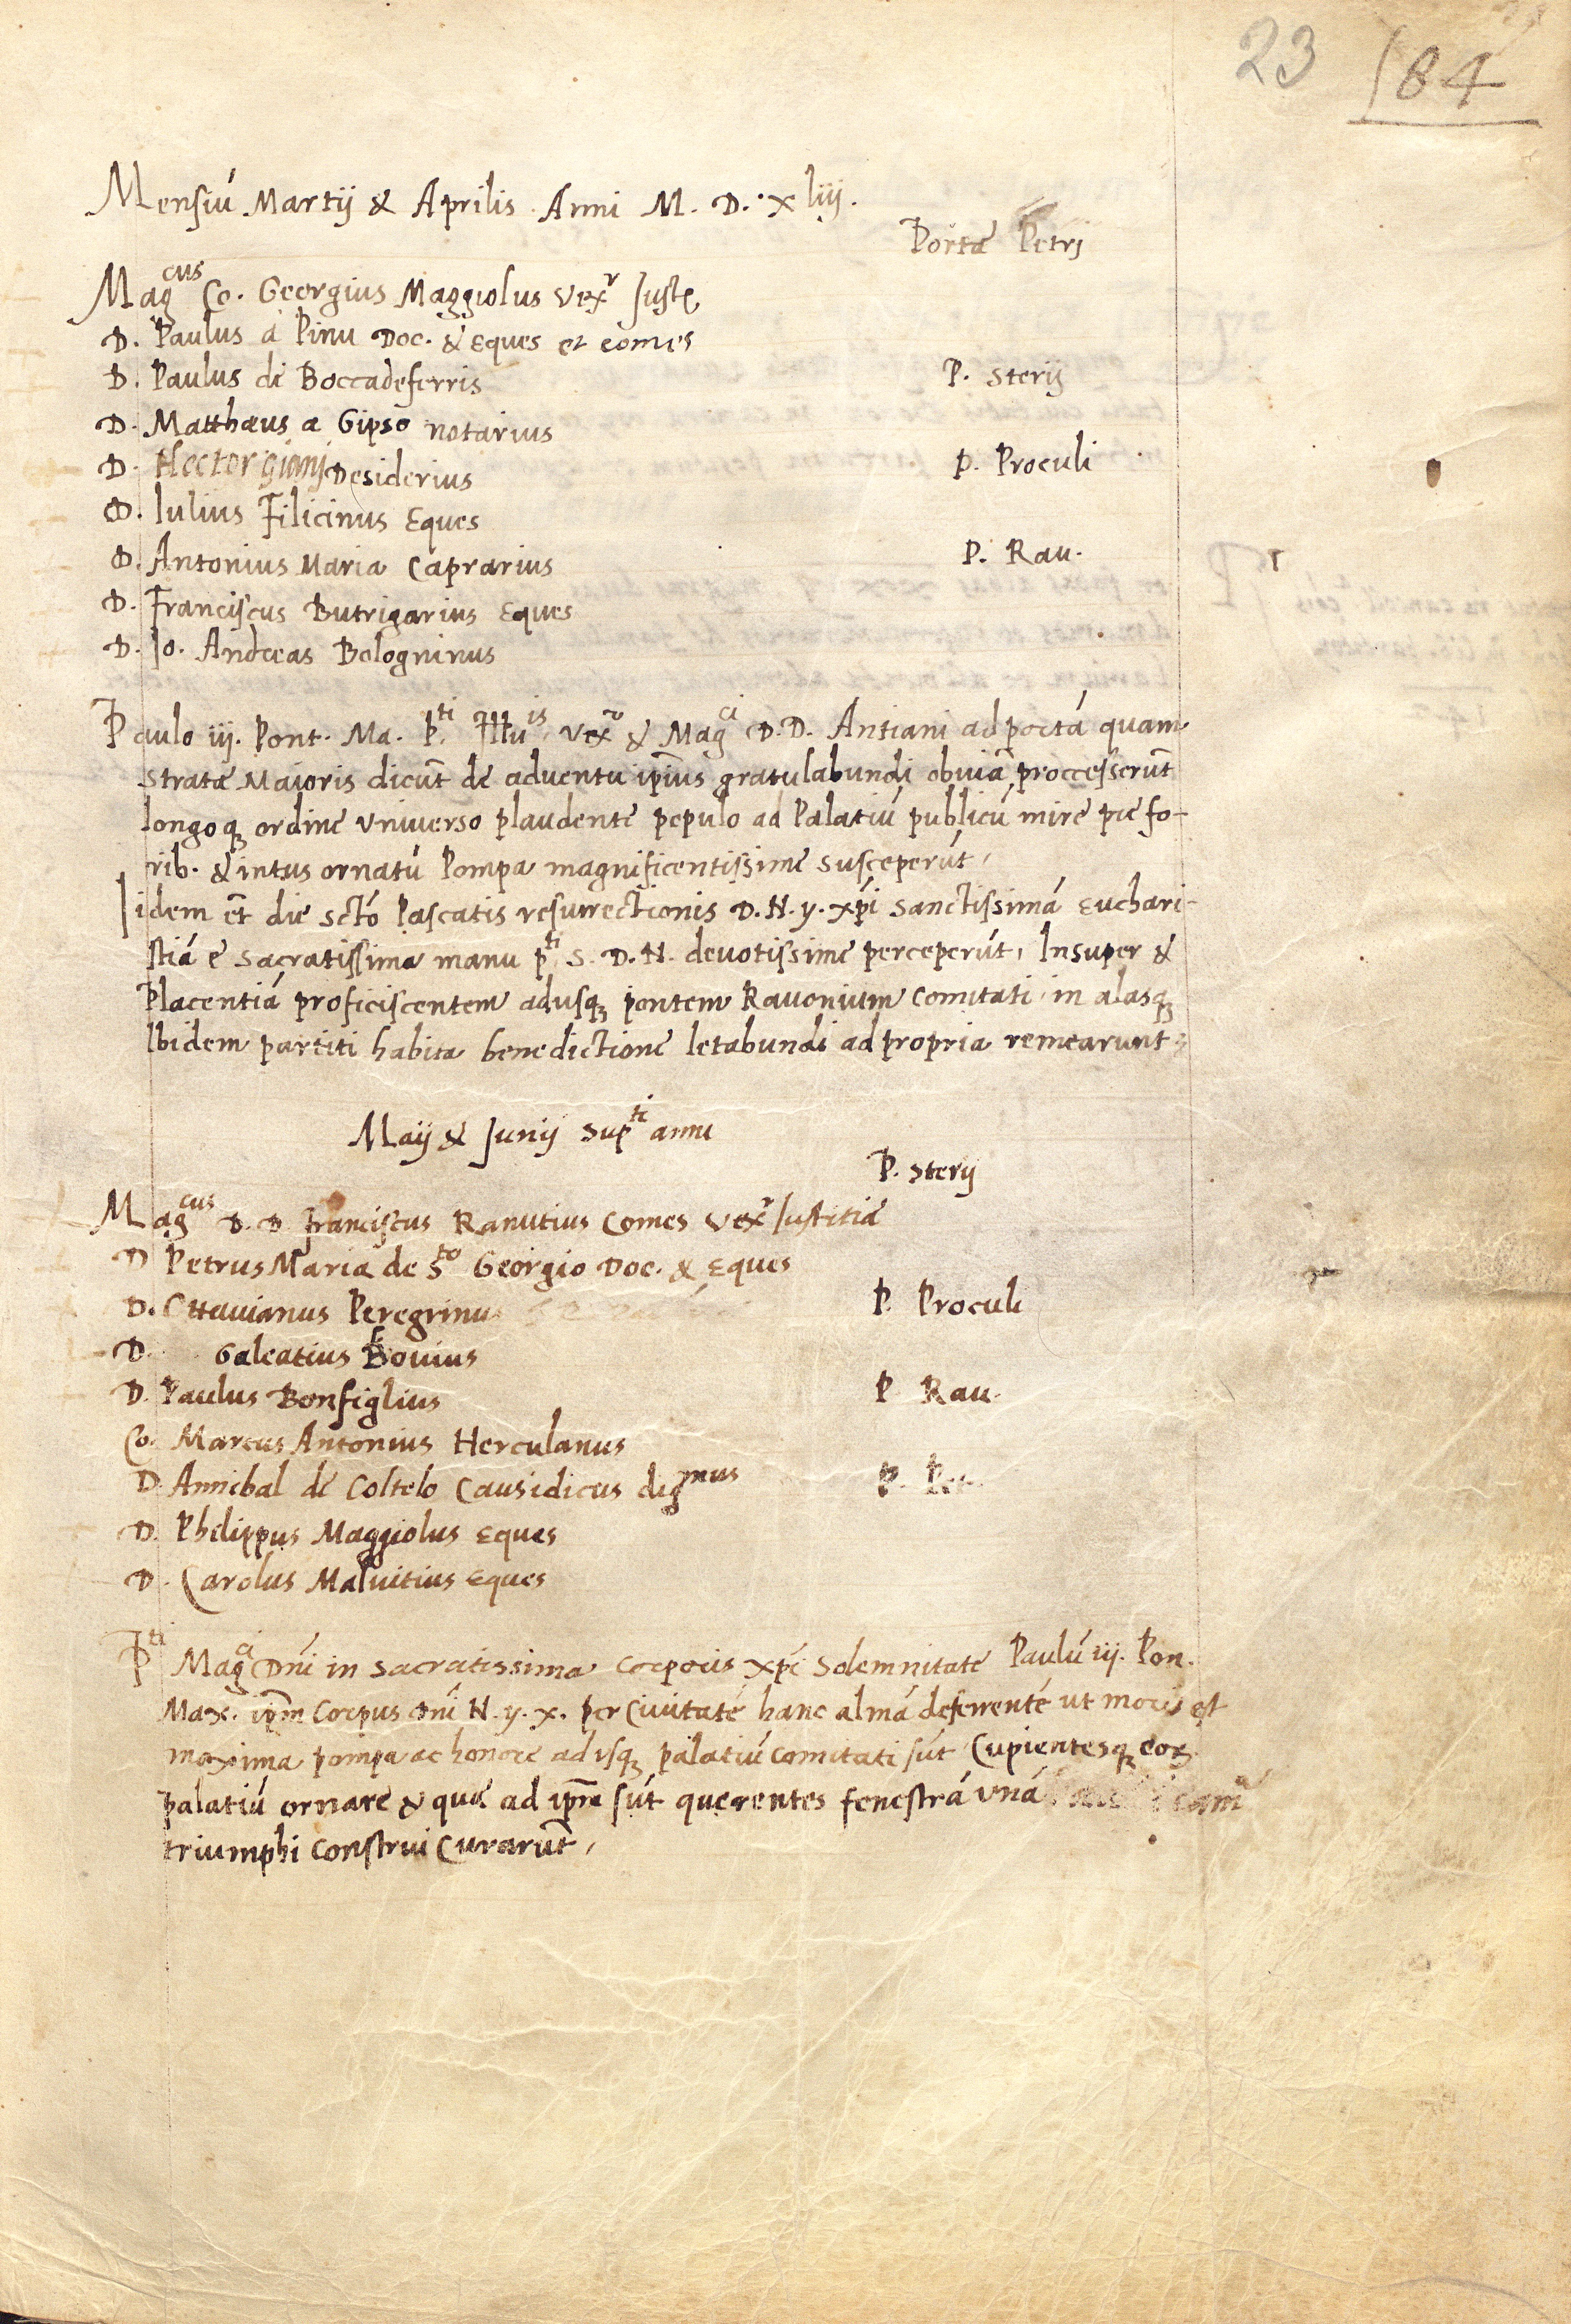 23 184
Mensiú Martij & Aprilis Anni M. D. xliij.
Portæ Petrj
Mag^cus Co. Georgius Maggiolus Vex^r Justę
D. Paulus a Pinu Doc. & Eques et comes
D. Paulus de Boccadeferris P. Sterij
D. Matthæus a Gipso notarius
D. Hector gianj Desiderius P. Proculi
D. Iulius Filicinus Eques
D. Antonius Maria Caprarius P. Rau.
D. Franciscus Butrigarius Eques
D. Io. Andreas Bologninus
Paulo iij. Pont. Ma. p^ti Illu^is Vex^r & Mag^ci D.D. Antiani ad portá quam
stratæ Maioris dicūt de aduentu ip̄ius gratulabundi obuiā proccesserūt
longoqȝ ordine vniuerso plaudente populo ad Palatiú publicú mire pre fo-
rib. & intus ornatú Pompa magnificentissime susceperút,
Iidem et̄ die sctó Pascatis resurrectionis D. N. y. xp̄i sanctissimá Euchari-
stiá e sacratissima manu p^ti S. D. N. deuotissime perceperút, Insuper &
Placentiá proficiscentem adusqȝ pontem Rauonium comitati in alasqȝ
Ibidem partiti habita benedictione letabundi ad propria remearunt
Maij & Junij sup^ti anni
P. Sterij
Mag^cus D. D Franciscus Ranutius Comes Vex^r Justitiæ
D Petrus Maria de S^to Georgio Doc. & Eques
D. Ottauianus Peregrinu P. Proculi
D. Galeatius Bouius
D. Paulus Bonfiglius P Rau.
Co. Marcus Antonius Herculanus
D Annibal de Coltelo Causidicus dig^mus P. Pet.
D. Philippus Maggiolus Eques
D. Carolus Maluitius Eques
P^ti Mag^ci Dn̄i in sacratissima corporis xp̄i solemnitate Paulú iij. Pon.
Max. ip̄m Corpus dn̄i N. y. x. per Ciuitaté hanc almá deferenté ut moris est
maxima pompa ac honore adusqȝ palatiú comitati sút Cupientesqȝ eoꝝ
palatiú ornare & que ad ip̄m sút querentes fenestrá vná
triumphi construi Curarūt,